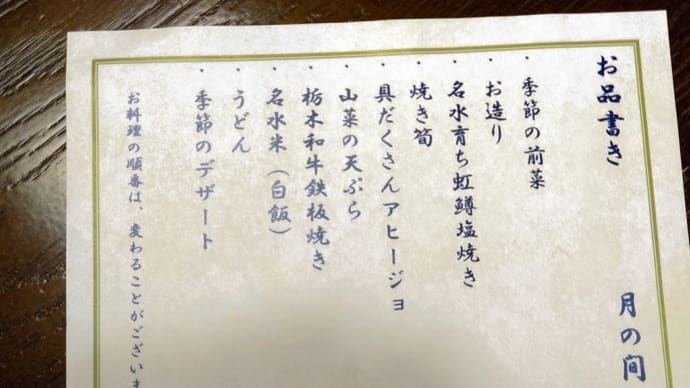 お品書き
月の間
・季節の前菜
・お造り
・名水育ち虹鱒塩焼き
・焼き筍
・具だくさんアヒージョ
・山菜の天ぷら
・栃木和牛鉄板焼き
・名水米（白飯）
・うどん
・季節のデザート
お料理の順番は、変わることがございま